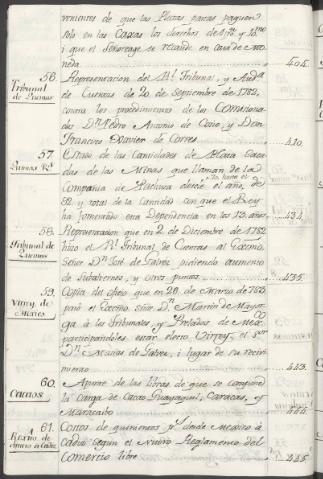 venientes de que las Platas pastas paguen
solo en las Caxas los derechos de
i que el Señoreage se recaude en Casa de Mo
neda 404.
56.
Tribunal de Cuentas
Representacion del Rl. Tribunal, y Aud.a
de Cuentas de 20 de Septiembre de 1782,
contra los procedimientos de los Comisiona-
dos Dn. Pedro Antonio de Cosio, y Don
Francisco Xavier de Corres 410.
57.
Estado de las Cantidades de Plata saca-
das de las Minas que llaman de la
Compañia de Pachuca desde el año de
y total de la Cantidad con que el Rey
ha fomentado esta Dependencia en los 13. años 434.
58.
Tribunal de Cuentas
Representacion que en 2 de Diciembre de 1782
hizo el Rl. Tribunal de Cuentas al Exc͞mo.
Señor Dn. Josef de Galvez pidiendo aumento
de Subalternos, y otros puntos 435.
59.
Virrey de Mexico
Copia del Oficio que en 28 de Marzo de 783
pasó el Exc͞mo. Señor Dn. Martin de Mayor
ga á los Tribunales, y Prelados de
participandoles estar electo Virrey, el Sor.
Dn. Matias de Galvez, i lugar de su reci
vimiento 443.
60.
Cacaos
Apunte de las libras de que se compone
la Carga de Cacao Guayaquil, Caracas, y
Maracaibo 444.
61.
Costos de quinientos ps. desde Mexico á
Cadiz segun el Nuevo Reglamento del
Comercio libre 445.